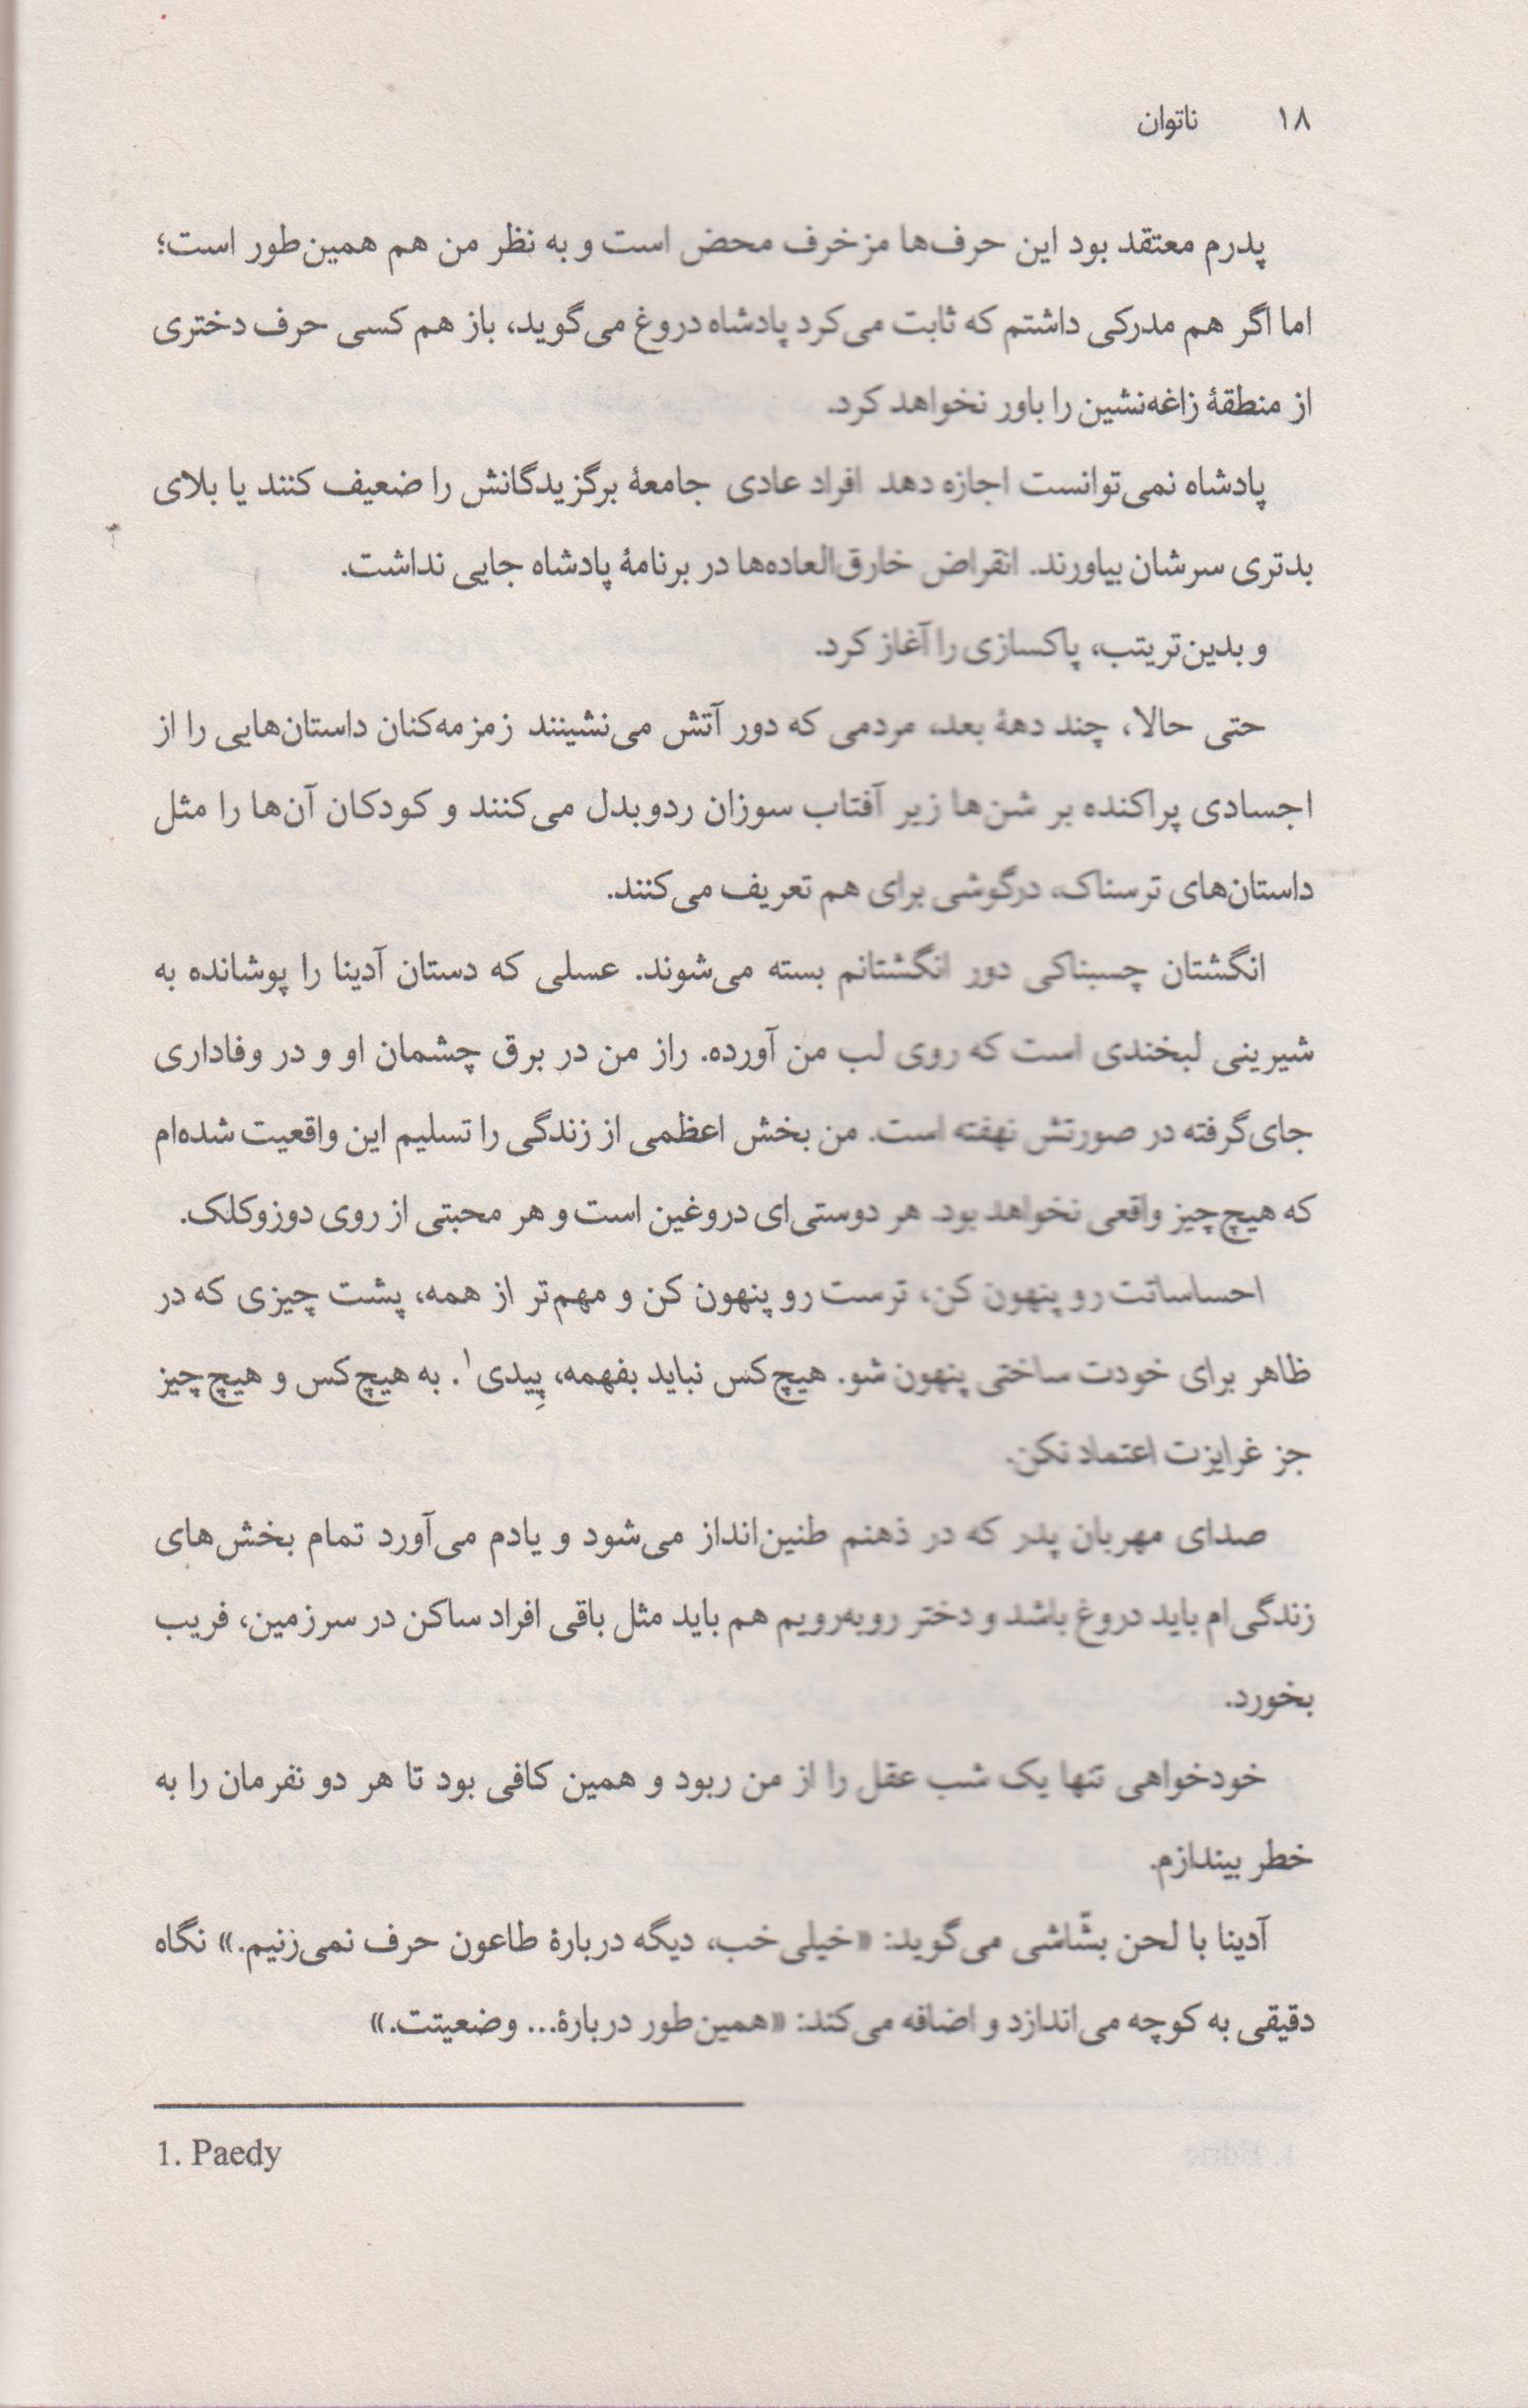 ۱۸ ناتوان
پدرم معتقد بود این حرف‌ها مزخرف محض است و به نظر من هم همین‌طور است؛
اما اگر هم مدرکی داشتم که ثابت می‌کرد پادشاه دروغ می‌گوید، باز هم کسی حرف دختری
از منطقهٔ زاغه‌نشین را باور نخواهد کرد.
پادشاه نمی‌توانست اجازه دهد افراد عادی جامعهٔ برگزیدگانش را ضعیف کنند یا بلای
بدتری سرشان بیاورند. انقراض خارق‌العاده‌ها در برنامهٔ پادشاه جایی نداشت.
و بدین‌تریتب، پاکسازی را آغاز کرد.
حتی حالا، چند دههٔ بعد، مردمی که دور آتش می‌نشینند زمزمه‌کنان داستان‌هایی را از
اجسادی پراکنده بر شن‌ها زیر آفتاب سوزان ردوبدل می‌کنند و کودکان آن‌ها را مثل
داستان‌های ترسناک، درگوشی برای هم تعریف می‌کنند.
انگشتان چسبناکی دور انگشتانم بسته می‌شوند. عسلی که دستان آدینا را پوشانده به
شیرینی لبخندی است که روی لب من آورده. راز من در برق چشمان او و در وفاداری
جای‌گرفته در صورتش نهفته است. من بخش اعظمی از زندگی را تسلیم این واقعیت شده‌ام
که هیچ‌چیز واقعی نخواهد بود. هر دوستی‌ای دروغین است و هر محبتی از روی دوزوکلک.
احساساتت رو پنهون کن، ترست رو پنهون کن و مهم‌تر از همه، پشت چیزی که در
ظاهر برای خودت ساختی پنهون شو. هیچ‌کس نباید بفهمه، پِیدی۱. به هیچ‌کس و هیچ‌چیز
جز غرایزت اعتماد نکن.
صدای مهربان پدر که در ذهنم طنین‌انداز می‌شود و یادم می‌آورد تمام بخش‌های
زندگی‌ام باید دروغ باشد و دختر روبه‌رویم هم باید مثل باقی افراد ساکن در سرزمین، فریب
بخورد.
خودخواهی تنها یک شب عقل را از من ربود و همین کافی بود تا هر دو نفرمان را به
خطر بیندازم.
آدینا با لحن بشّاشی می‌گوید: «خیلی خب، دیگه دربارهٔ طاعون حرف نمی‌زنیم.» نگاه
دقیقی به کوچه می‌اندازد و اضافه می‌کند: «همین‌طور دربارهٔ... وضعیتت.»
1. Paedy